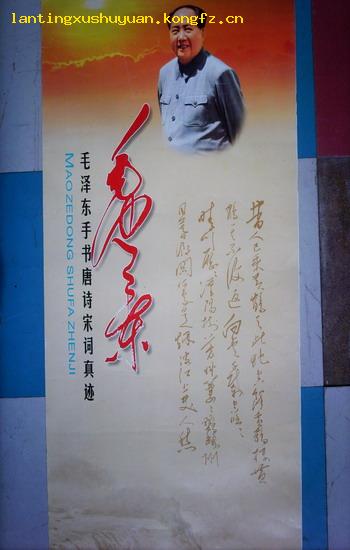 lantingxushuyuan.kongfz.cn
毛泽东
毛泽东手书唐诗宋词真迹
MAOZEDONG SHUFA ZHENJI
昔人已乘黄鹤去此地空余黄鹤楼黄
鹤一去不复返白云千载空悠悠
晴川历历汉阳树芳草萋萋鹦鹉洲
日暮乡关何处是烟波江上使人愁